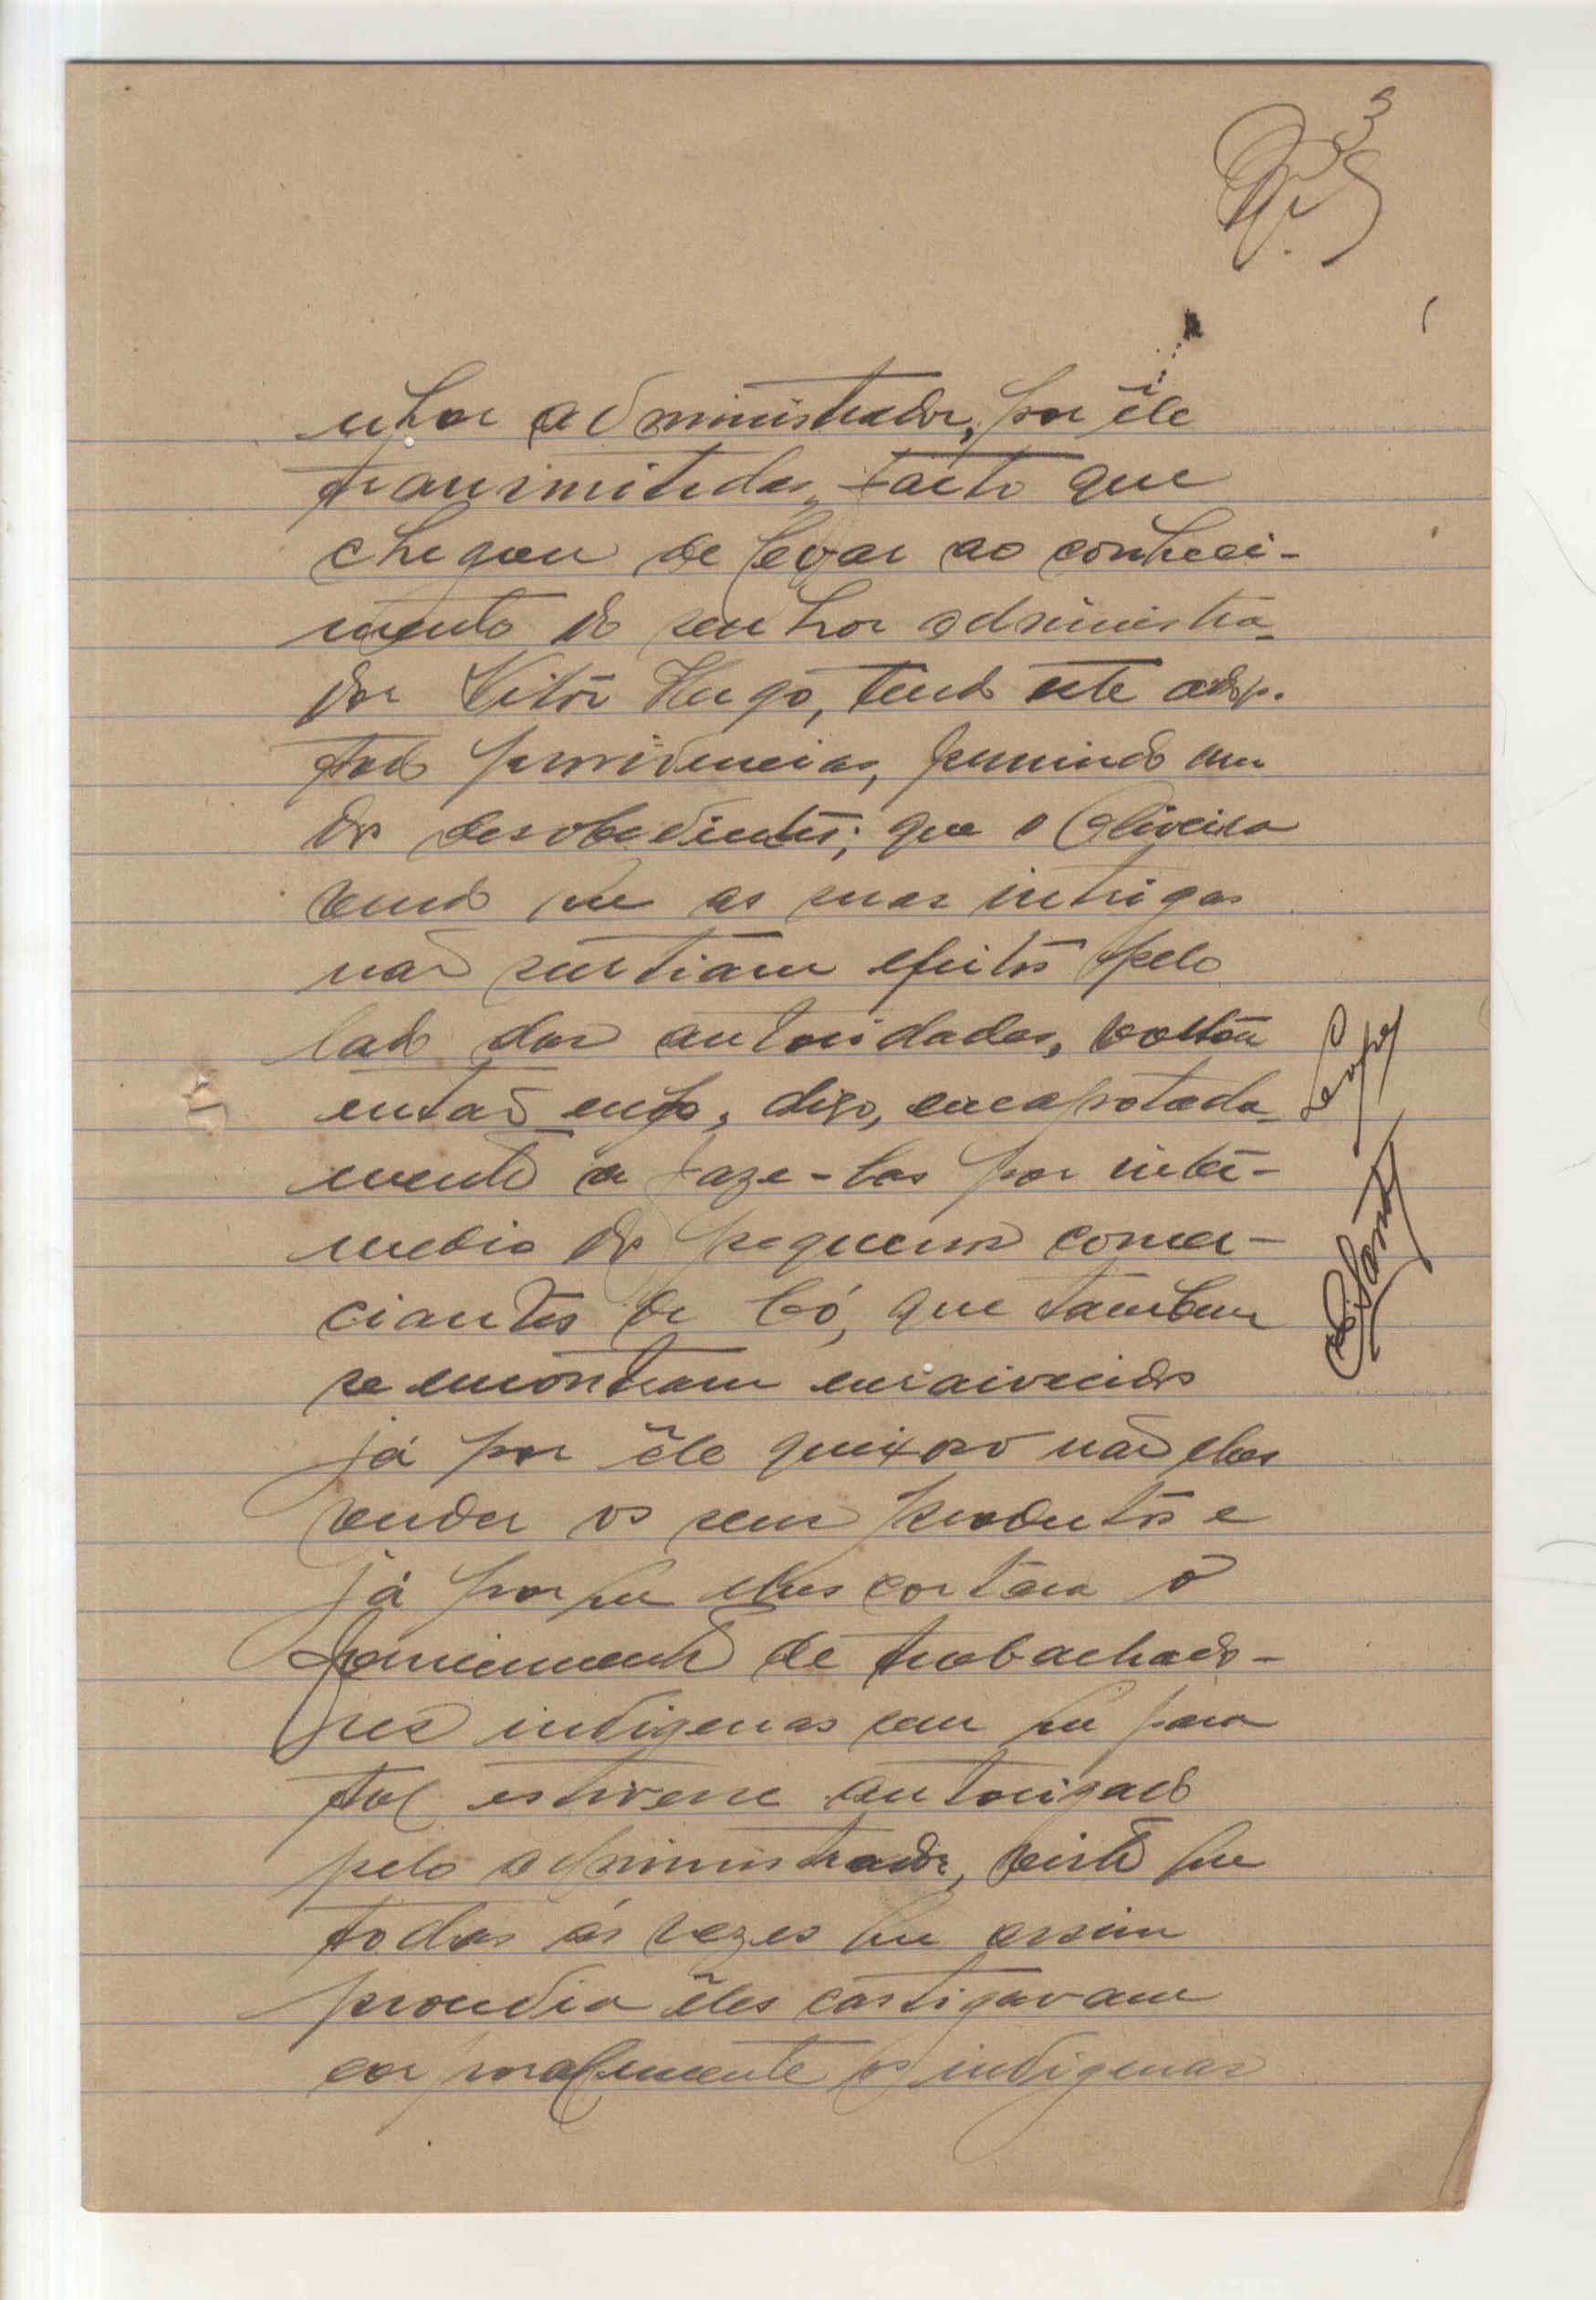 3
nhor administrador, por êle
transmitidas, facto que
chegou de levar ao conheci-
mento do senhor administra-
dor Vitor Hugo, tendo este adop-
tado providencias, punindo um
dos desobedientes; que o Oliveira
vendo que as suas intrigas
não surtiam efeitos pelo
lado das autoridades, voltou
então digo, encapotada-
mente a faze-las por inter-
medio de pequenos comer-
ciantes de Có, que tambem
se encontram enraivecidos
já por êle queixoso não lhes
vender os seus produtos e
já porque lhes cortara o
fornecimento de trabalhado-
res indigenas sem que para
tal estivesse autorizado
pelo administrador, visto que
todas ás vezes que assim
procedia êles castigavam
corporalmente os indigenas